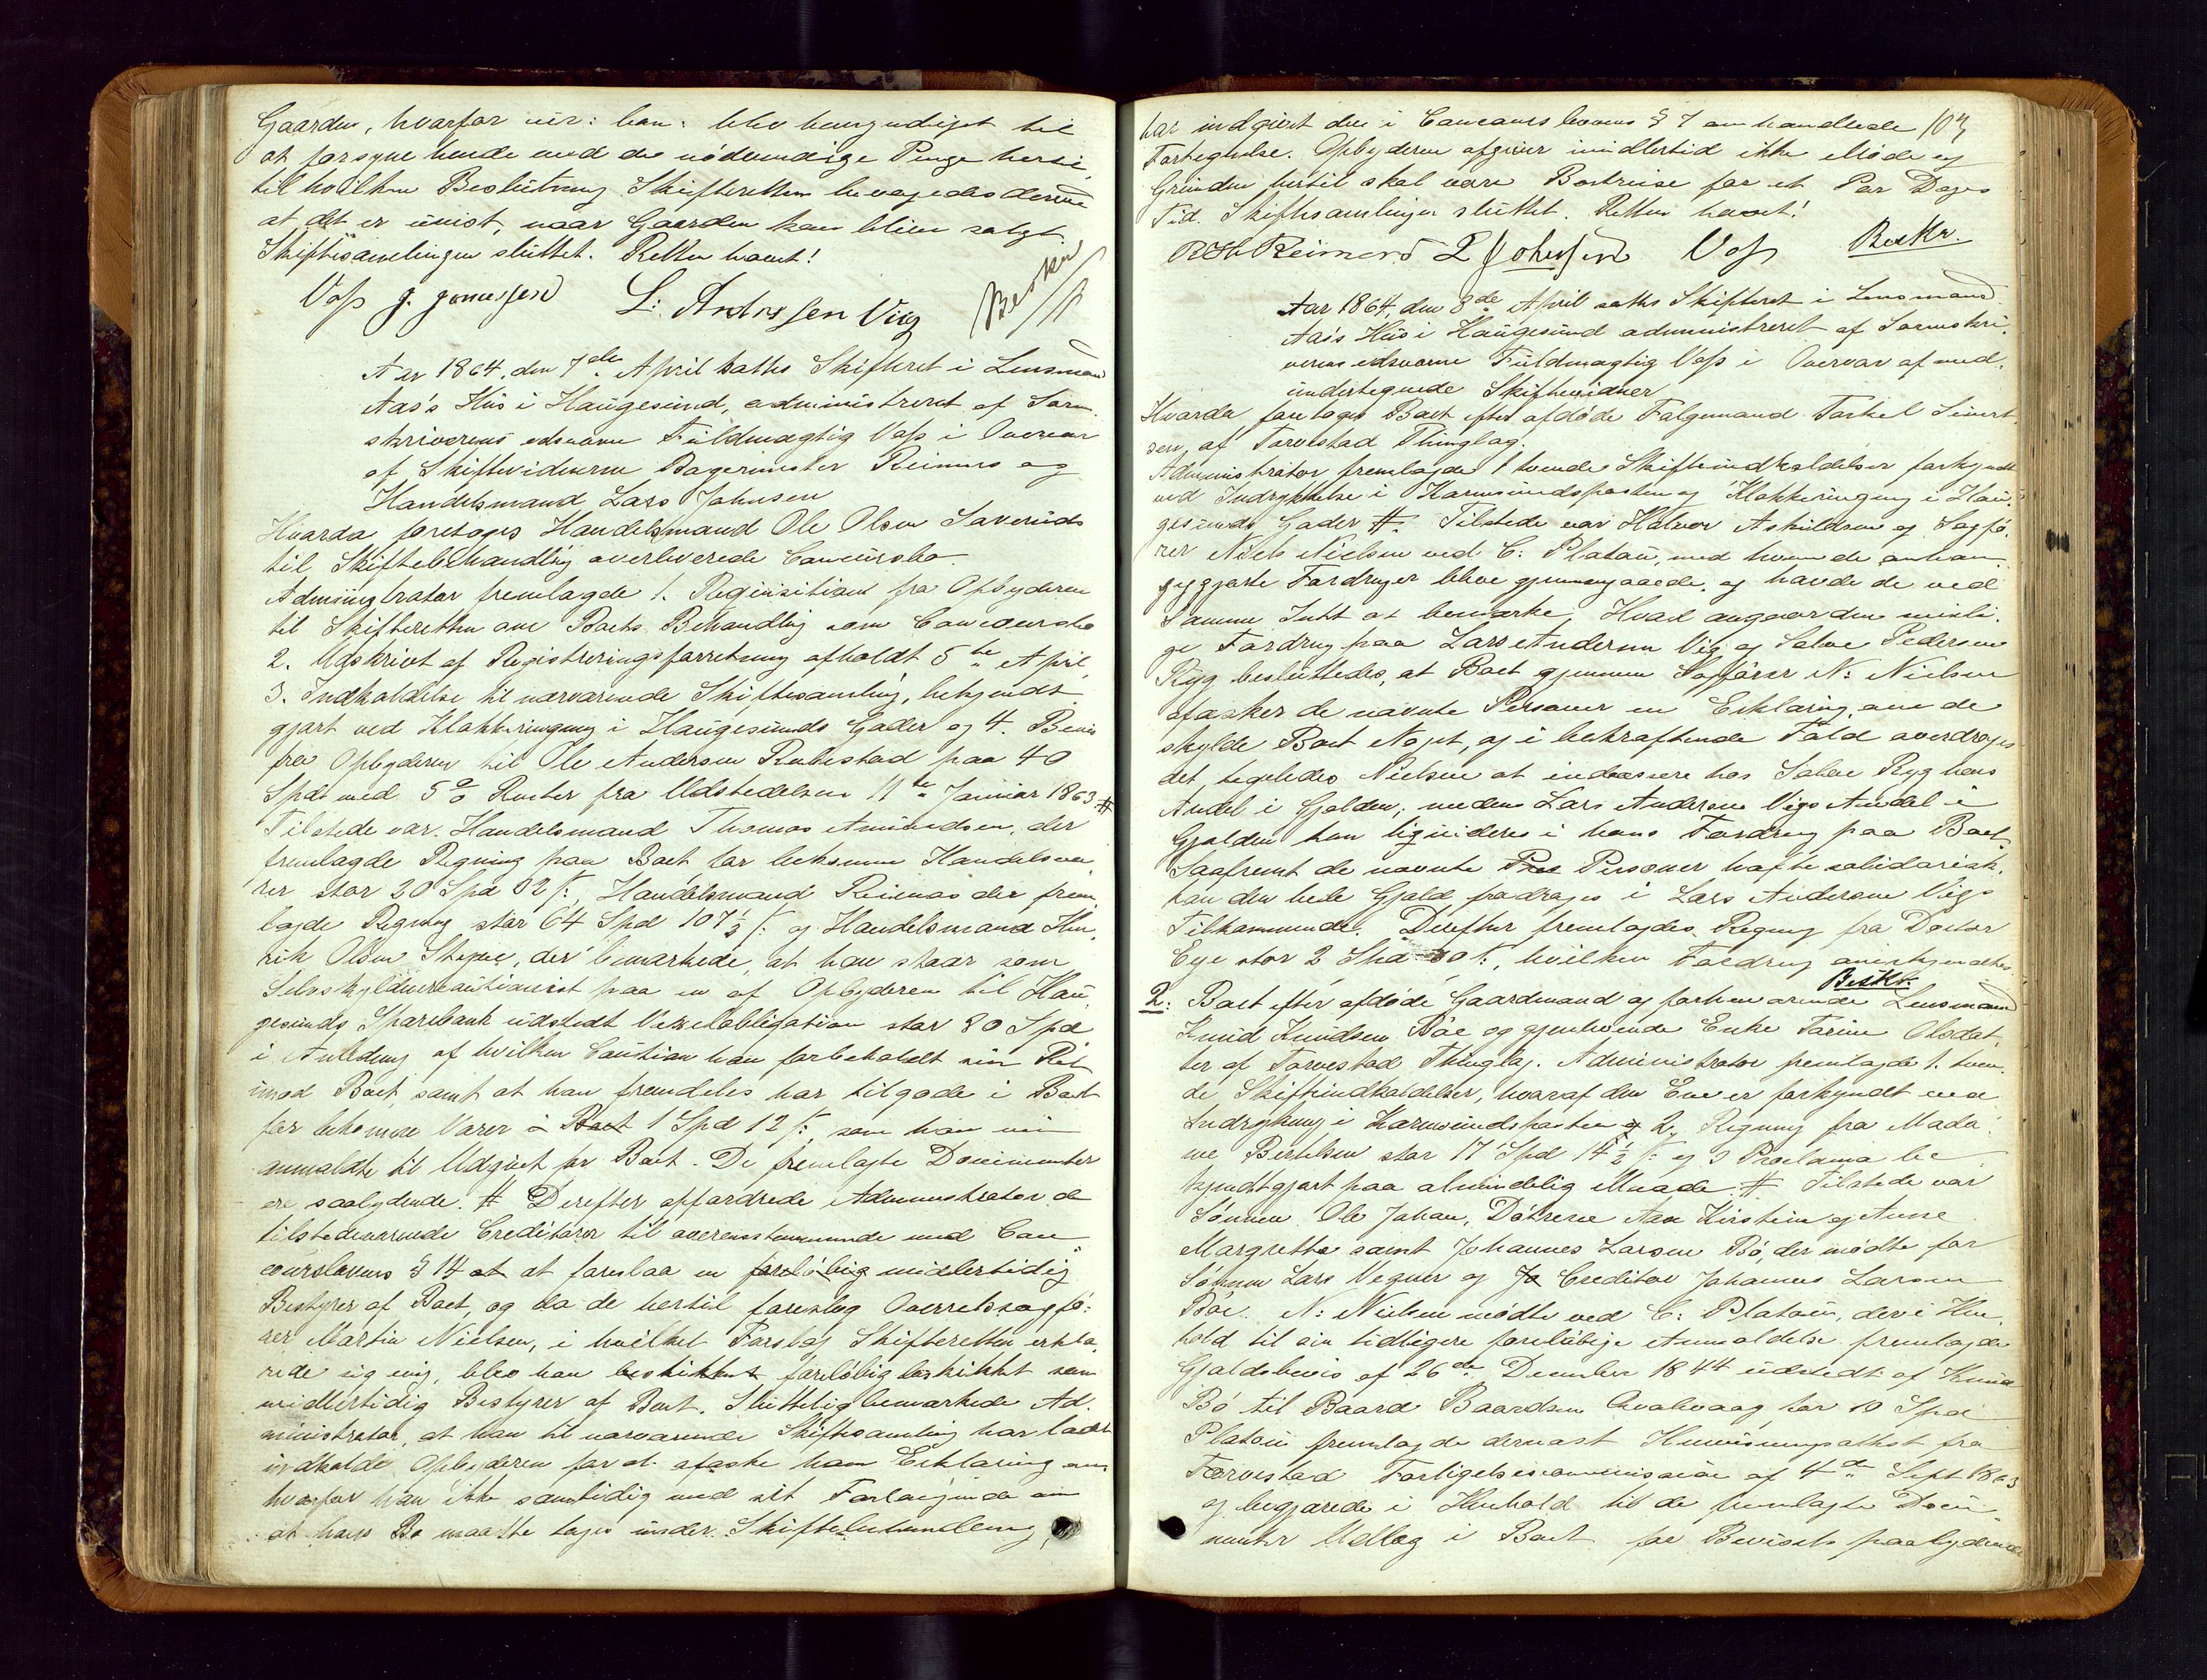 Gaarden, hvorfor
at forsyne hende med de nødvendige Penge
til hvilken Beslutning Skifteretten bevægedes derved
at det er uvist, naar Gaarden kan blive solgt.
Skiftesamlingen sluttet. Retten hævet!
Voss L: Andersen Viig Beskrev
Aar 1864, den 7de April sattes Skifteret i Lensmand
Aas's Hüs i Haügesünd, administreret af Soren-
skriverens edsvorne Füldmægtig Voss i Overvær
af Skiftevidnerne Bagermester Reimers og
Handelsmand Lars Johnsen
Hvorda foretoges Handelsmand Ole Olsen Saveruds
til Skiftebehandling overleverede Concürsbo.
Administrator fremlagde 1. Reqvisition fra Opbyderen
til Skifteretten om Boets Behandling som Concoursbo
2. Udskrivt af Registreringsforretning afholdt 5te April,
3. Indkaldelse til nærværende Skiftesamling, bekjendt
gjort ved Klokkeringing i Haügesünds Gader og 4. Bevis
fra Opbyderen til Ole Andersen Rullestad paa 40
Spd med 5% Renter fra Udstedelsen 11te Januar 1863 #
Tilstede var Handelsmand Thomas Amundsen, der
fremlagde Regning paa Boet for bekomne Handelsva
rer stor 20 Spd 02 ß:, Handelsmand Reimers der frem-
lagde Regning stor 64 Spd 107½ ß: og Handelsmand Hen-
rik Olsen, der bemærkede, at han staar som
Selvskyldnercautionist paa en af Opbyderen til Haü-
gesünds Sparebank üdstedt Vexelobligation stor 80 Spd
i Anledning af hvilken Caütion han forbeholdt sin Ret
imod Boet, samt at han fremdeles har tilgode i Boet
for bekomne Varer à Boet 1 Spd 12 ß:, som han nu
anmeldte til Udgivt for Boet. De fremlagte Documenter
ere saalydende. # Derefter opfordrede Administrator de
tilstedeværende Creditorer til overensstemmende med Con-
courslovens § 14 at at foreslaa en foreløbig midlertidig
Bestyrer af Boet, og da de hertil foreslog Overretssagfø-
rer Martin Nielsen, i hvilket Forslag Skifteretten erklæ-
rede sig enig, blev han beskikket foreløbig beskikket som
midlertidig Bestyrer af Boet. Sluttelig bemærkede Ad-
ministrator, at han til nærværende Skiftesamling har ladet
indkalde Opbyderen for at afæske ham Erklæring om
hvorfor han ikke samtidig med sit Forlangende om
at hans Bo maatte tages under Skiftebehandling,
har indgivet den i Concourslovens § 7 omhandlede 104
Fortegnelse. Opbyderen afgiver imidlertid ikke Møde og
Grunden hertil skal være Bortreise for et Par Dages
Tid. Skiftesamlingen sluttet. Retten hævet!
Reimers L Johnsen Voss Beskr.
Aar 1864, den 8de April sattes Skifteret i Lensmand
Aas's Hüs i Haügesünd administreret af Sorenskri-
verens edsvorne Füldmægtig Voss i Overvær af ned-
ündertegnede Skiftevidner
Hvorda foretoges Boet efter afdøde Følgemand Torkel Sivert-
sen, af Torvestad Thinglag.
Administrator fremlagde 1 tvende Skifteindkaldelser forkyndt
ved Indrykkelse i Karmsundsposten og Klokkeringing i Haü-
gesünds Gader #. Tilstede var Halvor Askildsen og Sagfø-
rer Niels Nielsen ved C: Platoü, med hvem de
Fordringer bleve gjennemgaaede, og havde de ved
Samme Intet at bemærke. Hvad angaar den
ge Fordring paa Lars Andersen Vig og Salve Pedersen
Ryg besluttedes, at Boet gjennem Sagfører N: Nielsen
afæsker de nævnte Personer en Erklæring, om de
skylde Boet Noget, og i bekræftende Fald overdroges
det ligeledes Nielsen at indcassere hos Salve Ryg hans
Andel i Gjælden; medens Lars Andersen Vigs Andel i
Gjælden kan liqvideres i hans Fordring paa Boet.
Saafremt de nævnte Pers Personer hafte solidarisk,
kan den hele Gjæld fradrages i Lars Andersen Vigs
Tilkommende. Derefter fremlagdes Regning fra Doctor
Eye stor 2 Spd 30 ß:, hvilken Fordring anerkjendtes.
Beskr.
2: Boet efter afdøde Gaardmand og forhenværende Lensmand
Knud Knudsen Böe og gjenlevende Enke Torine Olsdat-
ter af Torvestad Thinglag. Administrator fremlagde 1. tven-
de Skifteindkaldelser, hvoraf den Ene er forkyndt ved
Indrykning i Karmsundsposten og 2. Regning fra Mada-
me Bertelsen stor 17 Spd 14½ ß: og 3 Proclama be-
kjendtgjort paa almindelig Maade #. Tilstede var
Sønnen Ole Johan, Døtrene Ane Kirstin og Anne
Margrethe samt Johannes Larsen Bö, der mødte for
Sønnen Lars Vegner og Jo Creditor Johannes Larsen
Böe. N: Nielsen mødte ved C: Platoü, der i Hen-
hold til sin tidligere foreløbige Anmeldelse fremlagde
Gjældsbevis af 26de December 1844 üdstedt af Knud
Bö til Baard Baardsen Qvalvaag for 10 Spd
Platoü fremlagde dernæst Henvisningsattest fra
Torvestad Forligelsescommission af 4de Sept 1863
og begjærede i Henhold til de fremlagte Docu-
menter Udlæg i Boet for Bevisets paalydende